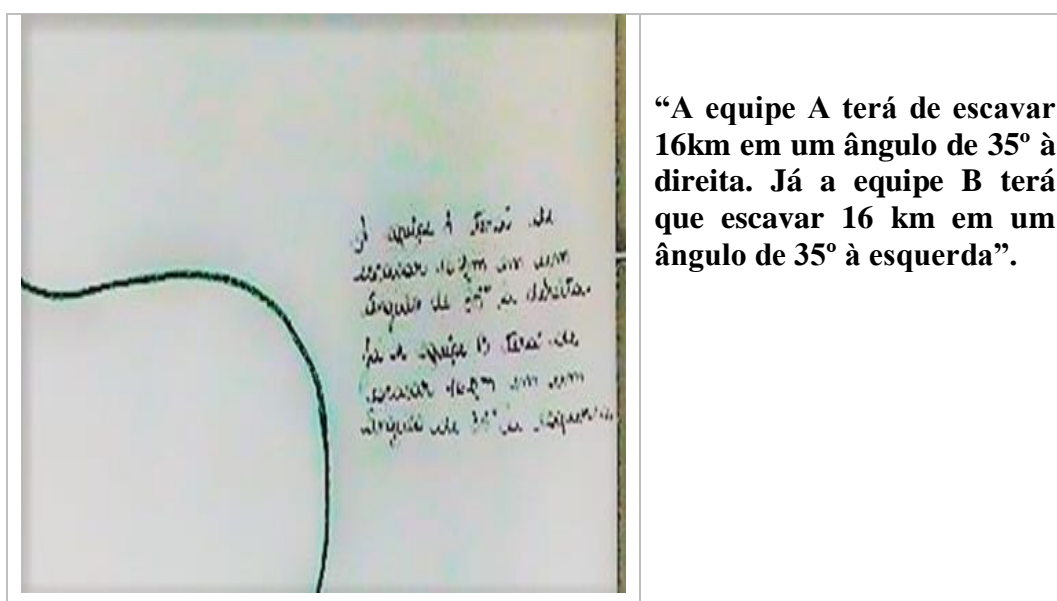 A equipe A terá de
escavar 16 km em um
ângulo de 35° à direita.
Já a equipe B terá de
escavar 16 km em um
ângulo de 35° à esquerda
“A equipe A terá de escavar
16km em um ângulo de 35º à
direita. Já a equipe B terá
que escavar 16 km em um
ângulo de 35º à esquerda”.